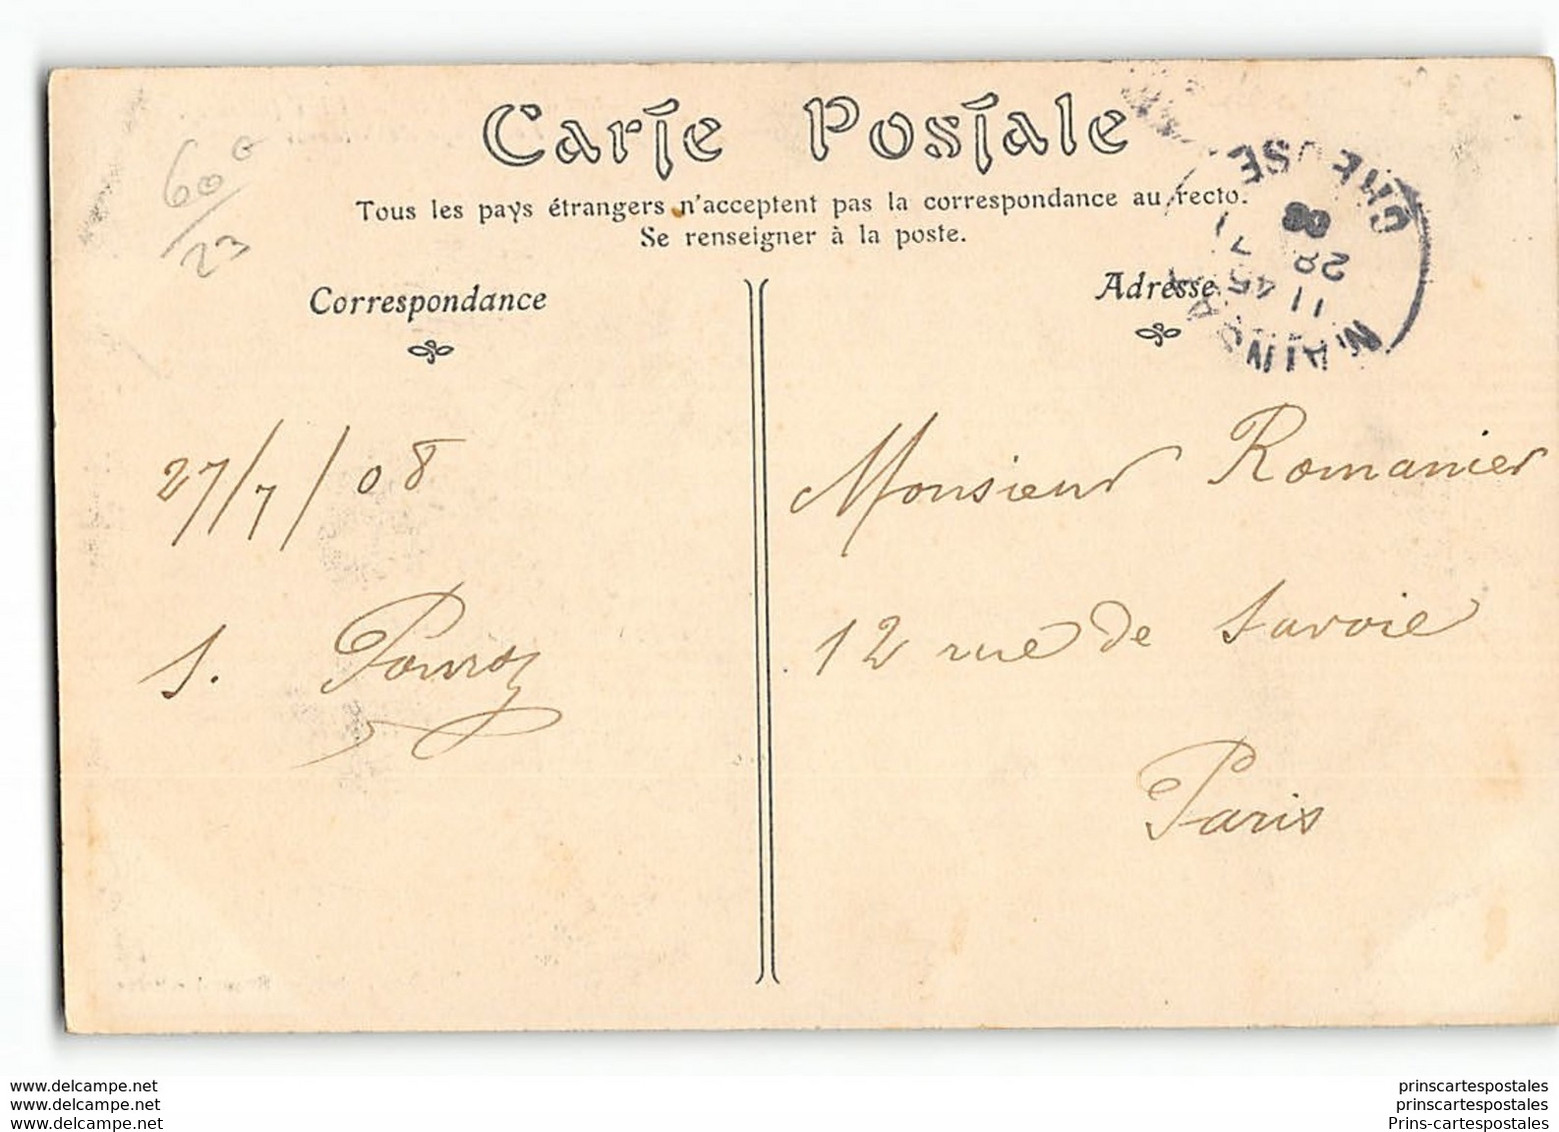 Carte Postale
Tous les pays étrangers n'acceptent pas la correspondance au recto.
Se renseigner à la poste.
60
23
Correspondance
Adresse
MEUSE
28 7
08
11 45
27/7/08
S.
Monsieur Romanier
12 rue de Savoie
Paris
www.delcampe.net
www.delcampe.net
www.delcampe.net
prinscartespostales
prinscartespostales
Prins-cartespostales